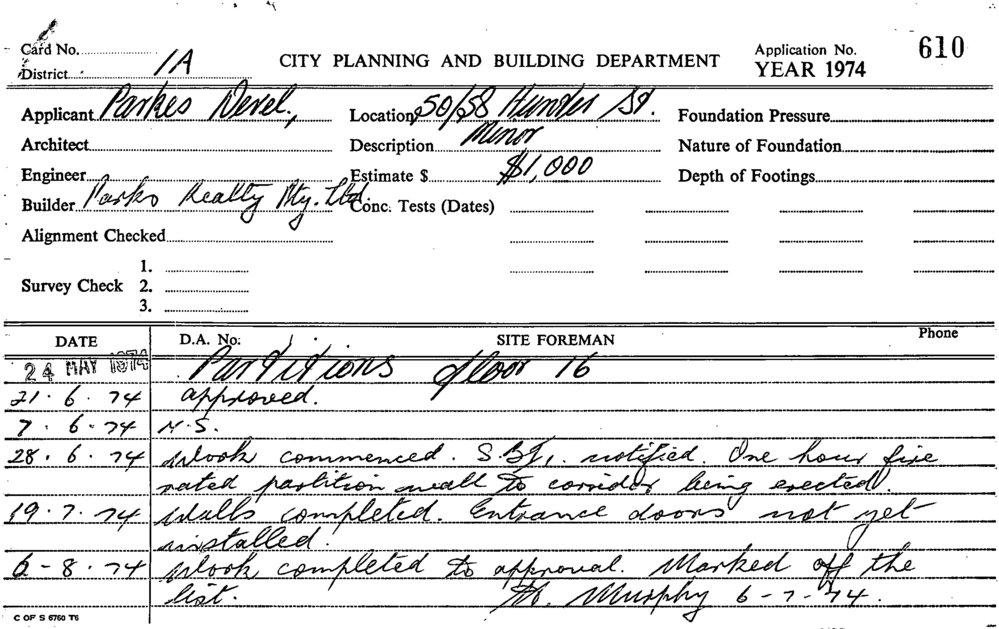 Card No.
District 1A
CITY PLANNING AND BUILDING DEPARTMENT
Application No. 610
YEAR 1974
Applicant Parkes Devel.,
Location 50/58 Hunter St.
Foundation Pressure
Architect
Description Minor
Nature of Foundation
Engineer
Estimate $ $1,000
Depth of Footings
Builder Parkes Realty Pty. Ltd.
Conc. Tests (Dates)
Alignment Checked
Survey Check 1.
2.
3.
DATE D.A. No. SITE FOREMAN Phone
24 MAY 1974 Partitions floor 16
21.6.74 approved.
7.6.74 N.S.
28.6.74 Work commenced. notified. One hour fire
rated partition wall to corridor being erected.
19.7.74 Walls completed. Entrance doors not yet
installed.
6-8.74 Work completed to approval. Marked off the
list. Murphy 6-7-74.
C OF S 6760 T6